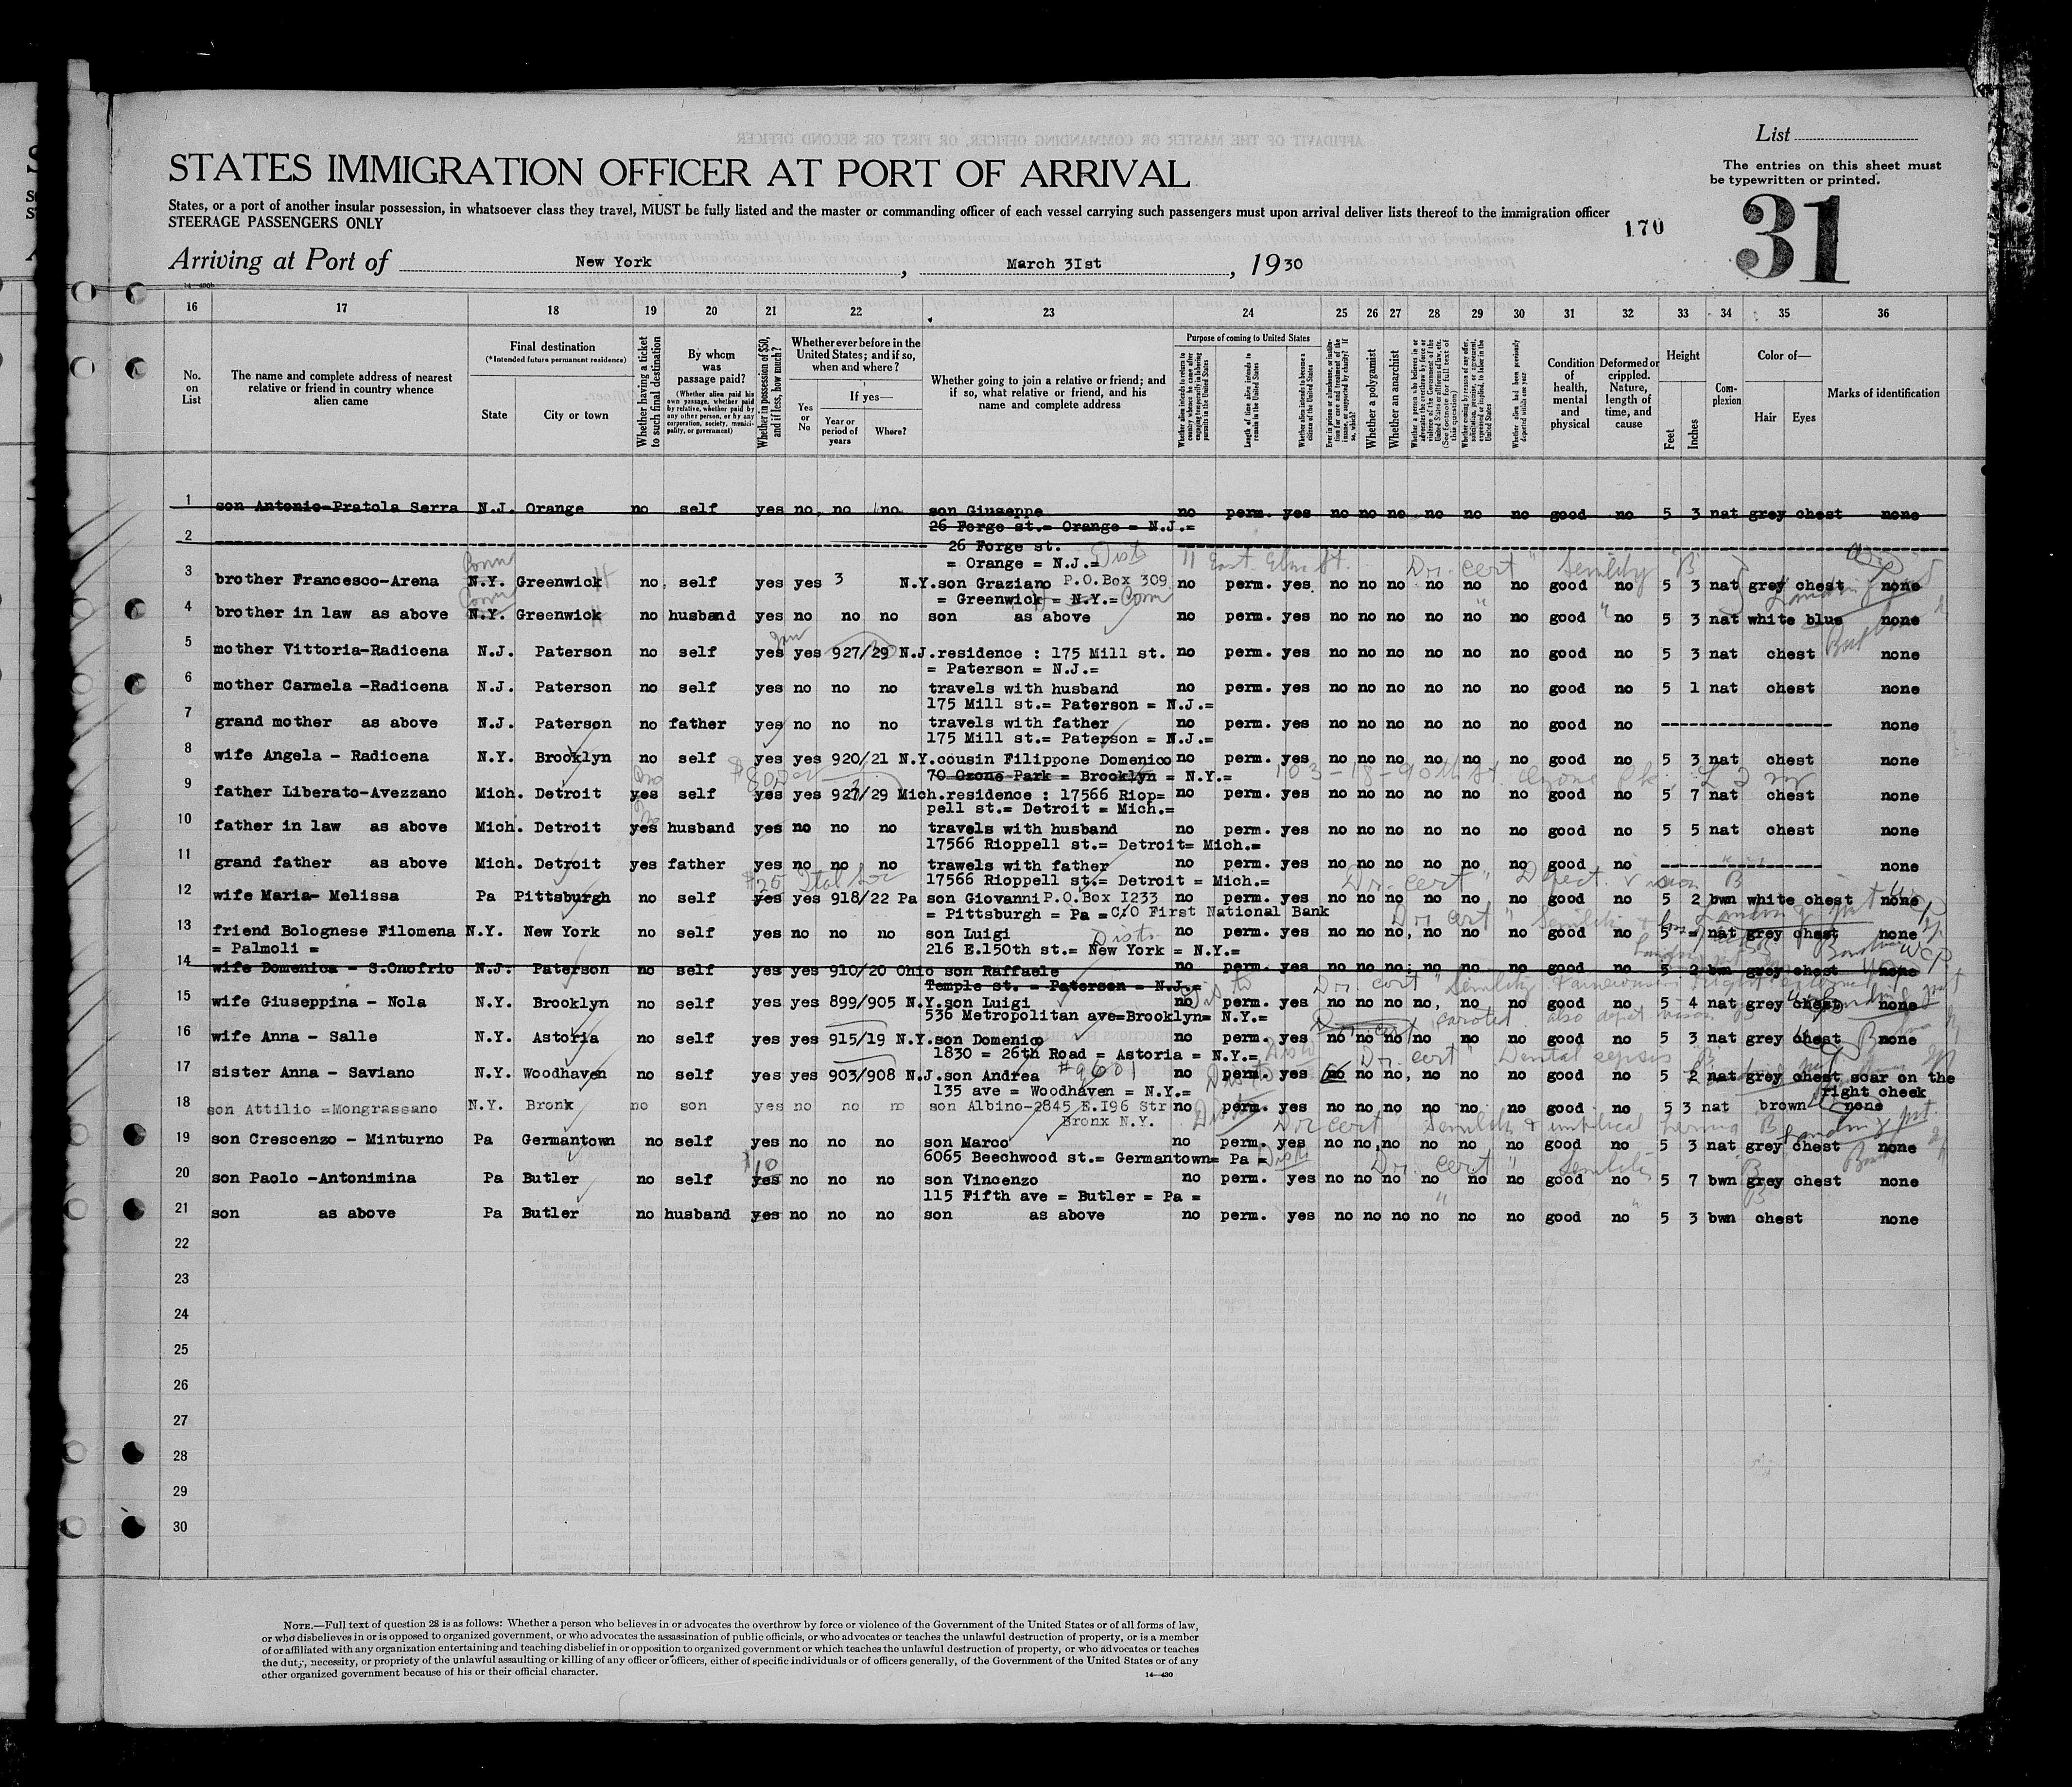 List
The entries on this sheet must
be typewritten or printed.
STATES IMMIGRATION OFFICER AT PORT OF ARRIVAL
States, or a port of another insular possession, in whatsoever class they travel, MUST be fully listed and the master or commanding officer of each vessel carrying such passengers must upon arrival deliver lists thereof to the immigration officer
STEERAGE PASSENGERS ONLY
170
31
Arriving at Port of New York, March 3Ist, 1930
16 17 18 19 20 21 22 23 24 25 26 27 28 29 30 31 32 33 34 35 36
No. on List
The name and complete address of nearest relative or friend in country whence alien came
Final destination
(*Intended future permanent residence)
State
City or town
Whether having a ticket to such final destination
By whom was passage paid?
(Whether alien paid his own passage, whether paid by relative, whether paid by any other person, or by any corporation, society, municipality, or government)
Whether in possession of $50, and if less, how much?
Whether ever before in the United States; and if so, when and where?
Yes or No
If yes—
Year or period of years
Where?
Whether going to join a relative or friend; and if so, what relative or friend, and his name and complete address
Purpose of coming to United States
Whether a polygamist
Whether an anarchist
Condition of health, mental and physical
Deformed or crippled. Nature, length of time, and cause
Height
Feet
Inches
Complexion
Color of—
Hair
Eyes
Marks of identification
1 son Antonio-Pratola Serra N.J. Orange no self yes no no no son Giuseppe no perm. yes no no no no no no good no 5 3 nat grey chest none
26 Forge st.= Orange = N.J.=
2
26 Forge st.
= Orange = N.J.= 11 East Elm St. Dr. cert " Senility B
Conn
3 brother Francesco-Arena N.Y. Greenwick no self yes yes 3 N.Y. son Graziano P.O.Box 309 no perm. yes no no no no no no good no 5 3 nat grey chest none
= Greenwick = N.Y.= Conn
Conn
4 brother in law as above N.Y. Greenwick no husband yes no no no son as above no perm. yes no no no no no no good no 5 3 nat white blue none
5 mother Vittoria-Radicena N.J. Paterson no self yes yes 927/29 N.J. residence : 175 Mill st. no perm. yes no no no no no no good no 5 3 nat chest none
= Paterson = N.J.=
6 mother Carmela -Radicena N.J. Paterson no self yes no no no travels with husband no perm. yes no no no no no no good no 5 1 nat chest none
175 Mill st.= Paterson = N.J.=
7 grand mother as above N.J. Paterson no father yes no no no travels with father no perm. yes no no no no no no good no none
175 Mill st.= Paterson = N.J.=
8 wife Angela - Radicena N.Y. Brooklyn no self yes yes 920/21 N.Y. cousin Filippone Domenico no perm. yes no no no no no no good no 5 3 nat chest none
70 Ozone Park = Brooklyn = N.Y.= 103-18-90th St. Ozone Pk
9 father Liberato-Avezzano Mich. Detroit yes self yes yes 927/29 Mich. residence : 17566 Riop= no perm. yes no no no no no no good no 5 7 nat chest none
pell st.= Detroit = Mich.=
10 father in law as above Mich. Detroit yes husband yes no no no travels with husband no perm. yes no no no no no no good no 5 5 nat chest none
17566 Rioppell st.= Detroit= Mich.=
11 grand father as above Mich. Detroit yes father yes no no no trawels with father no perm. yes no no no no no no good no none
17566 Rioppell st.= Detroit = Mich.= Dr. cert " Defect. vision B
$25
12 wife Maria- Melissa Pa Pittsburgh no self yes yes 918/22 Pa son Giovanni P.O.Box I233 no perm. yes no no no no no no good no 5 2 bwn white chest none
= Pittsburgh = Pa = C/O First National Bank Dr. cert "
13 friend Bolognese Filomena N.Y. New York no self yes no no no son Luigi no perm. yes no no no no no no good no 5 = nat grey chest none
= Palmoli = 216 E.150th st.= New York = N.Y.=
14 wife Domenica - S.Onofrio N.J. Paterson no self yes yes 910/20 Ohio son Raffaele no perm. yes no no no no no no good no 5 2 bwn grey chest none
Temple st. = Paterson = N.J.= Dr. cert " Senility
15 wife Giuseppina - Nola N.Y. Brooklyn no self yes yes 899/905 N.Y. son Luigi no perm. yes no no no no no no good no 5 4 nat grey chest none
536 Metropolitan ave=Brooklyn= N.Y.=
16 wife Anna - Salle N.Y. Astoria no self yes yes 915/19 N.Y. son Domenico no perm. yes no no no no no no good no 5 3 nat grey chest none
1830 = 26th Road = Astoria = N.Y.= Dr. cert " Dental sepsis B
17 sister Anna - Saviano N.Y. Woodhaven no self yes yes 903/908 N.J. son Andrea #9601 no perm. yes no no no no no no good no 5 2 nat grey chest scar on the
135 ave = Woodhaven = N.Y.= right cheek
18 son Attilio =Mongrassano N.Y. Bronk no son yes no no no son Albino-2845 E.I96 Str no perm. yes no no no no no no good no 5 3 nat brown none
Bronx N.Y. Dr cert Senility & umbilical hernia B
19 son Crescenzo - Minturno Pa Germantown no self yes no no no son Marco no perm. yes no no no no no no good no 5 3 nat grey chest none
6065 Beechwood st.= Germantown= Pa = Dr. cert " Senility
$10
20 son Paolo -Antonimina Pa Butler no self yes no no no son Vincenzo no perm. yes no no no no no no good no 5 7 bwn grey chest none
115 Fifth ave = Butler = Pa =
21 son as above Pa Butler no husband yes no no no son as above no perm. yes no no no no no no good no 5 3 bwn chest none
22
23
24
25
26
27
28
29
30
NOTE.—Full text of question 28 is as follows: Whether a person who believes in or advocates the overthrow by force or violence of the Government of the United States or of all forms of law,
or who disbelieves in or is opposed to organized government, or who advocates the assassination of public officials, or who advocates or teaches the unlawful destruction of property, or is a member
of or affiliated with any organization entertaining and teaching disbelief in or opposition to organized government or which teaches the unlawful destruction of property, or who advocates or teaches
the duty, necessity, or propriety of the unlawful assaulting or killing of any officer or officers, either of specific individuals or of officers generally, of the Government of the United States or of any
other organized government because of his or their official character.
14—430